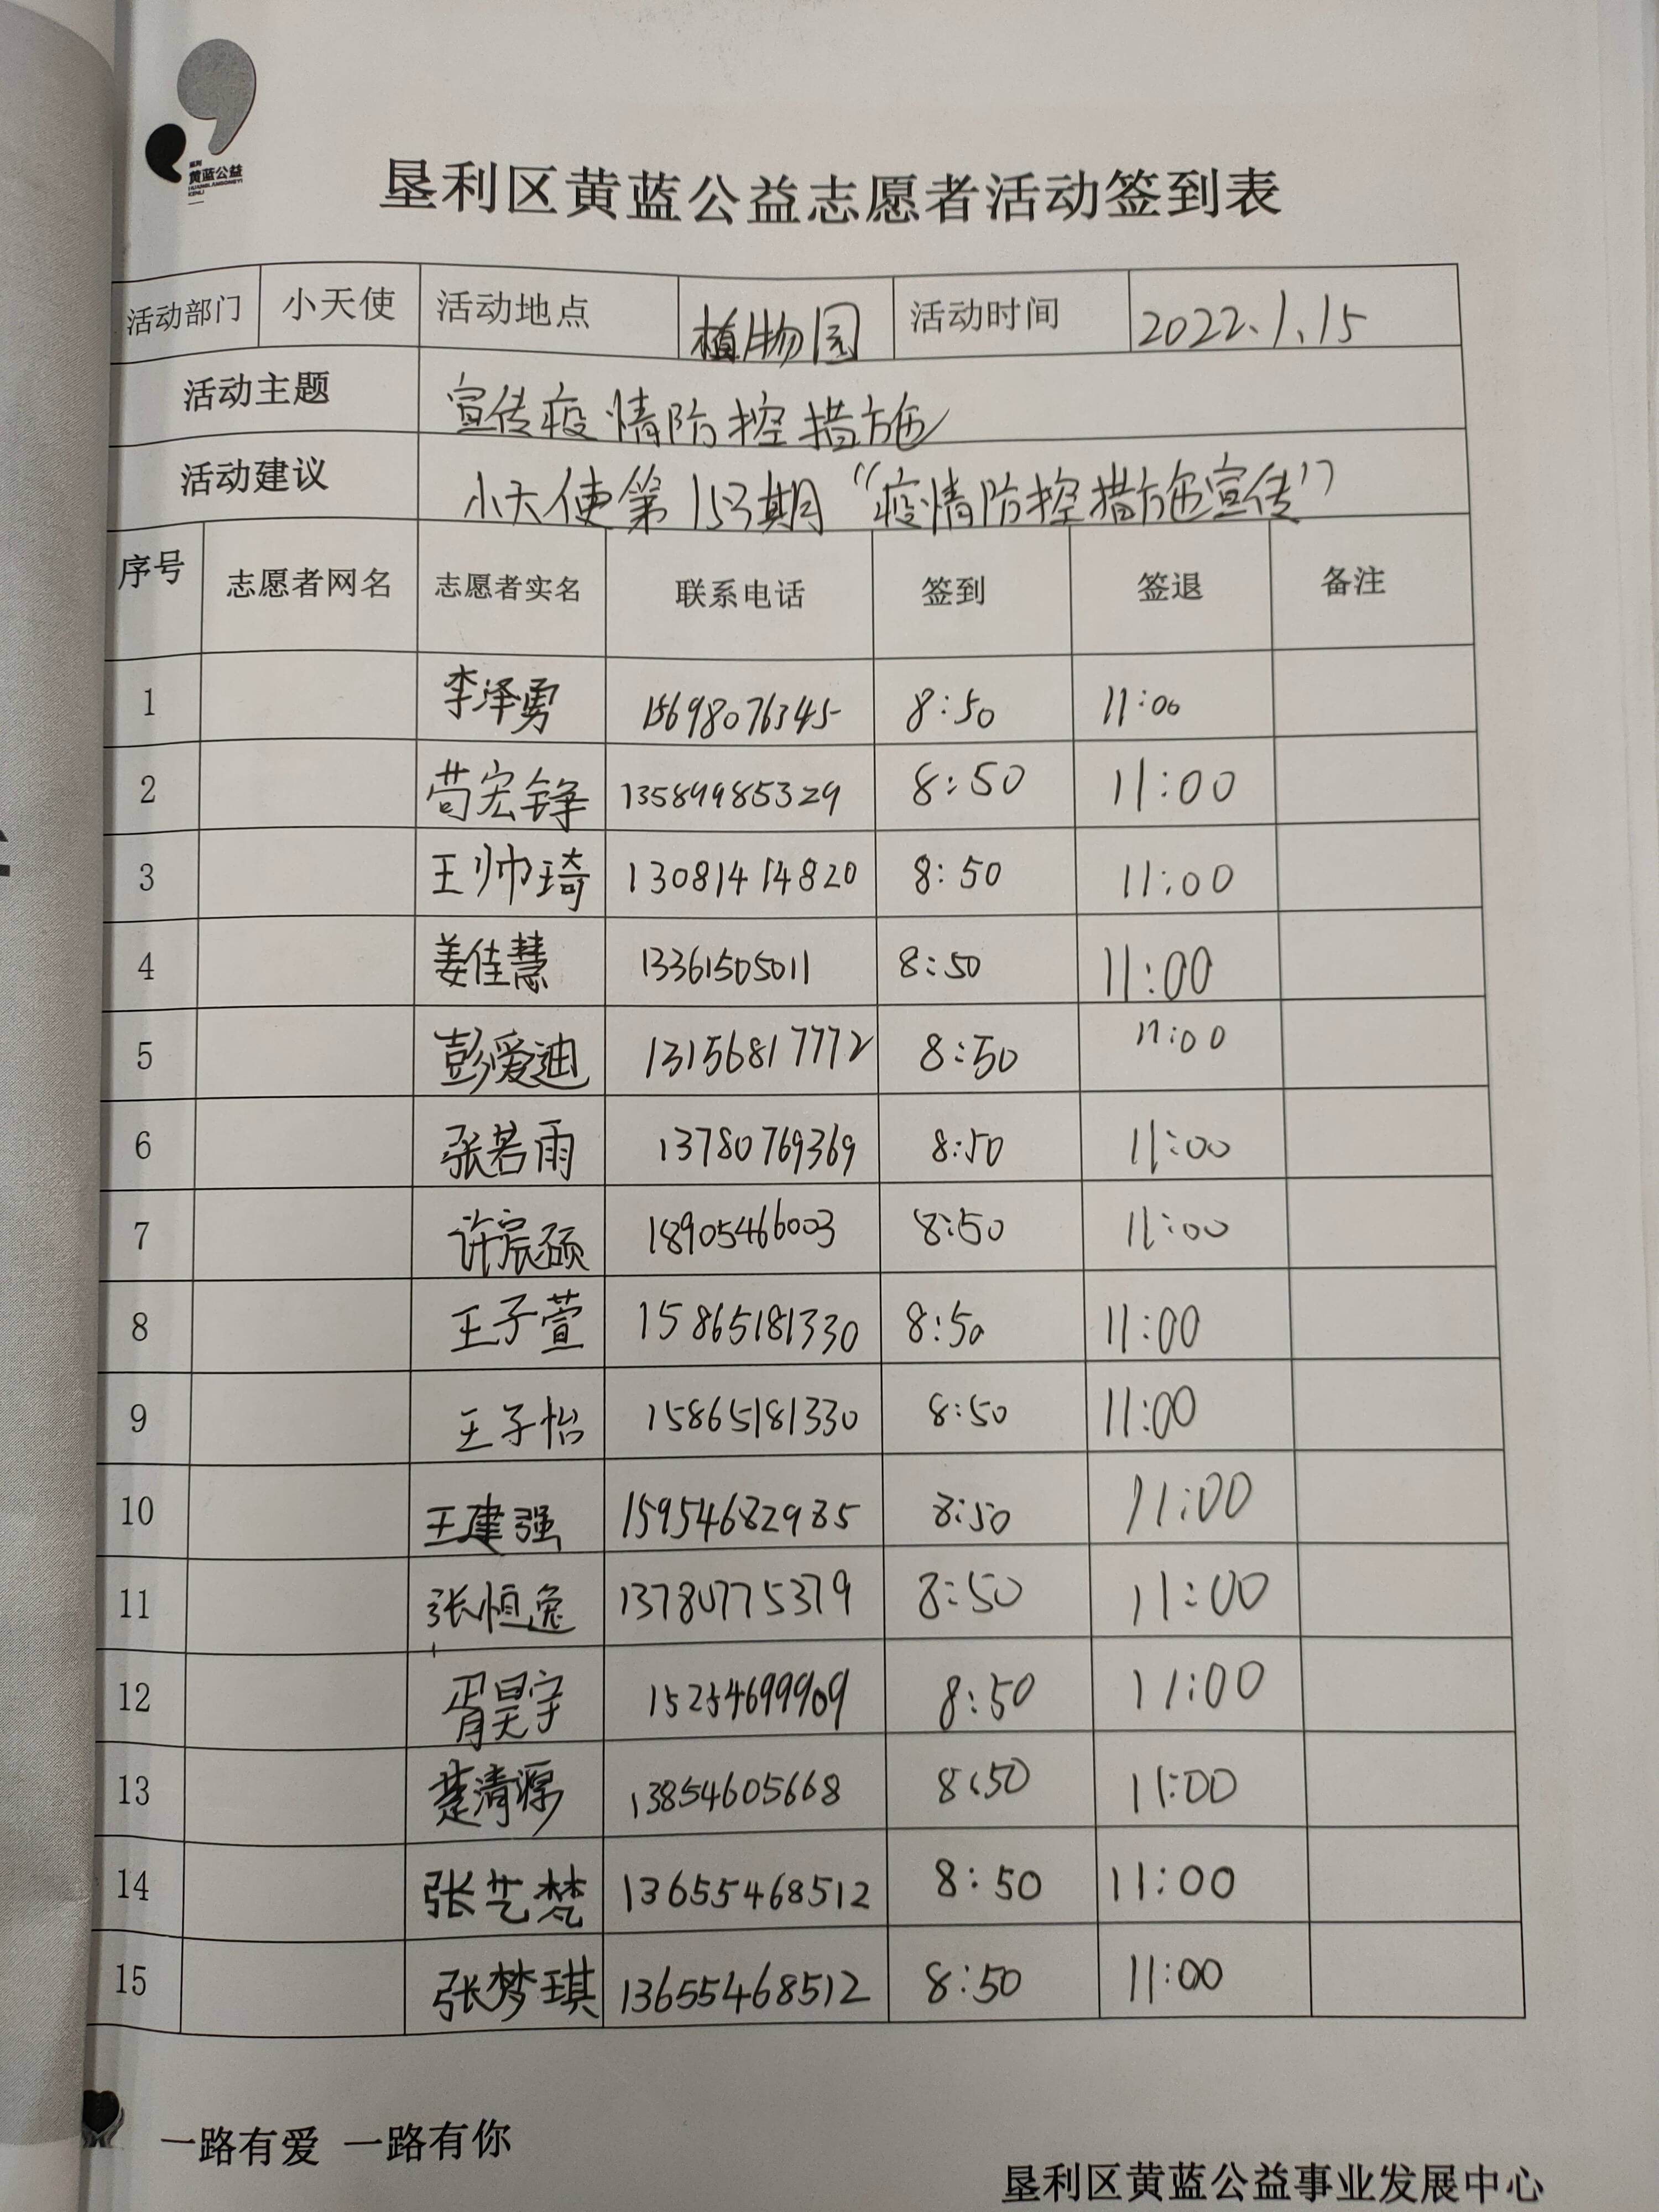 垦利
黄蓝公益
HUANGLANGONGYI
KENLI
垦利区黄蓝公益志愿者活动签到表
活动部门 小天使 活动地点 植物园 活动时间 2022.1.15
活动主题 宣传疫情防控措施
活动建议 小天使第153期“疫情防控措施宣传”
序号 志愿者网名 志愿者实名 联系电话 签到 签退 备注
1 李泽勇 15698076345 8:50 11:00
2 苟宏铮 13589985329 8:50 11:00
3 王帅琦 13081414820 8:50 11:00
4 姜佳慧 13361505011 8:50 11:00
5 彭爱迪 13156817772 8:50 11:00
6 张若雨 13780769369 8:50 11:00
7 许宸硕 18905466003 8:50 11:00
8 王子萱 15865181330 8:50 11:00
9 王子怡 15865181330 8:50 11:00
10 王建强 15954682985 8:50 11:00
11 张恒逸 13780775379 8:50 11:00
12 胥昊宇 15254699909 8:50 11:00
13 楚清源 13854605668 8:50 11:00
14 张艺梵 13655468512 8:50 11:00
15 张梦琪 13655468512 8:50 11:00
一路有爱 一路有你
垦利区黄蓝公益事业发展中心